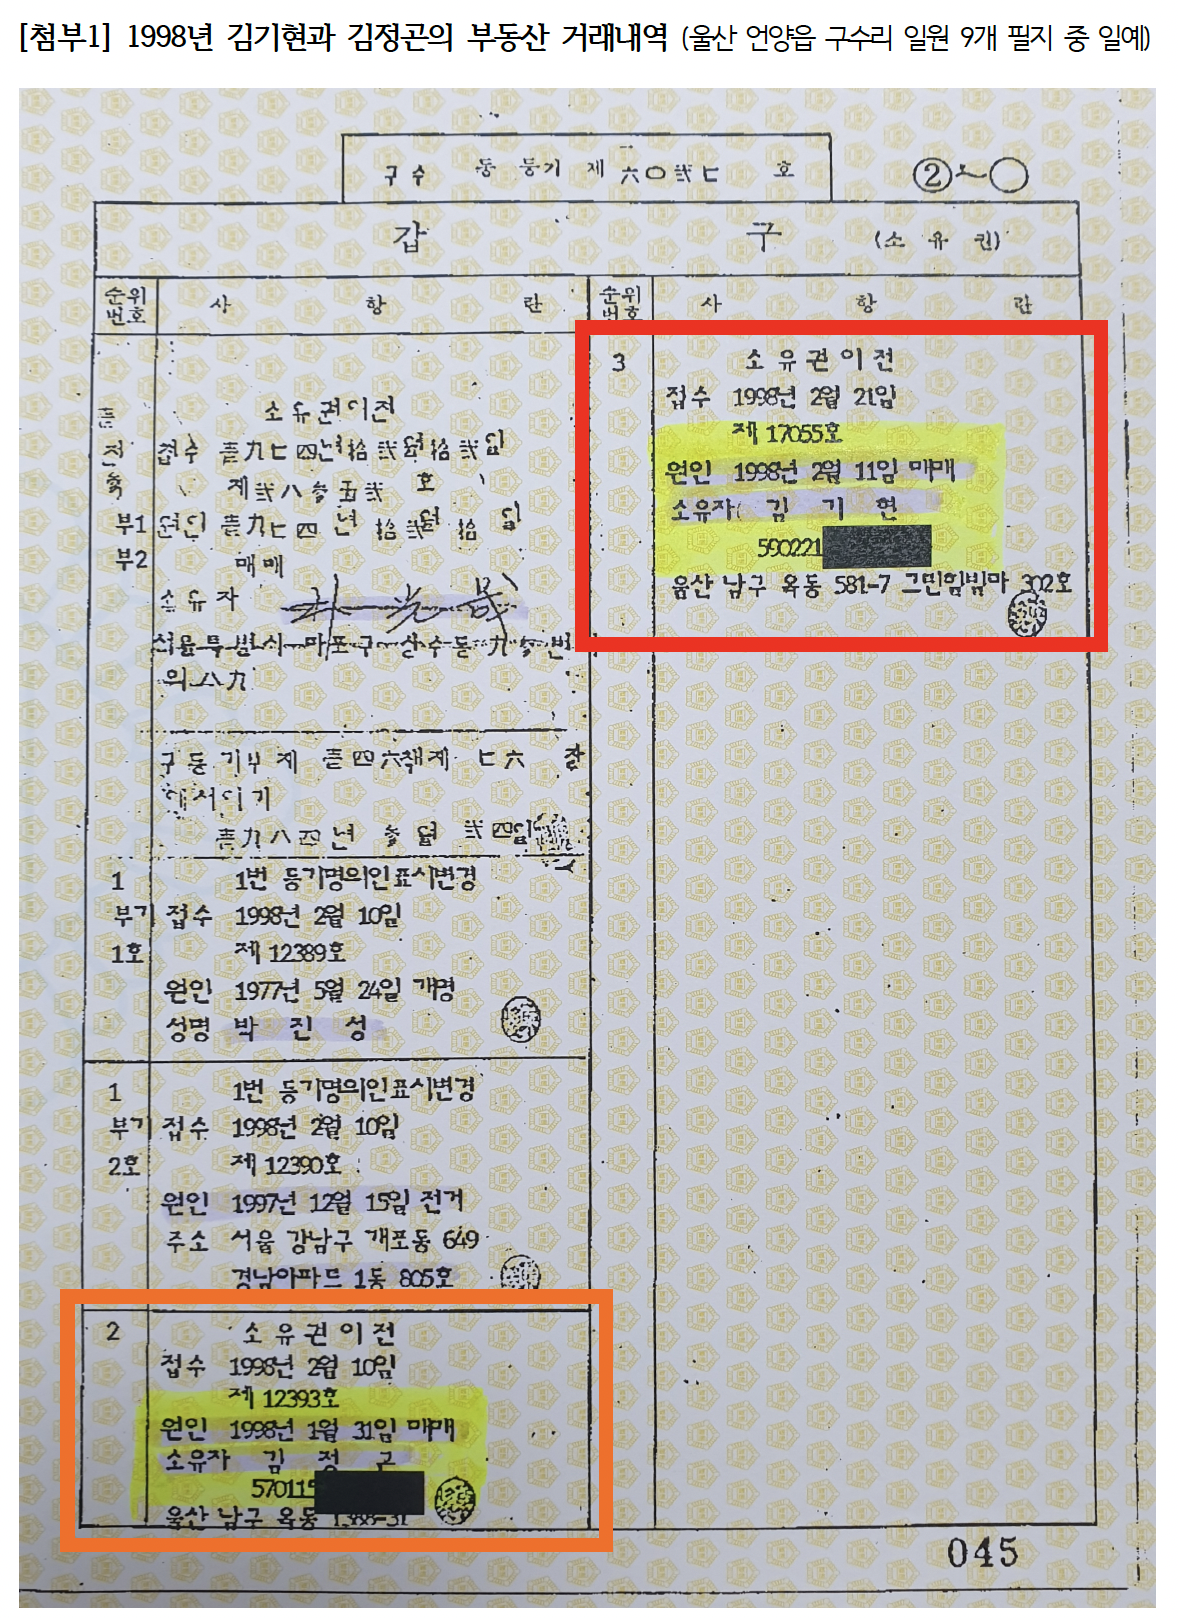 [첨부1] 1998년 김기현과 김정곤의 부동산 거래내역 (울산 언양읍 구수리 일원 9개 필지 중 일예)
구수 동 등기 제 六〇貳七 호
② ~ ○
갑 구 (소 유 권)
순위번호 사 항 란
순위번호 사 항 란
전
소유권이전
접수 壹九七四년拾貳월拾貳일
제貳八參五貳 호
부1 원인 壹九七四 년 拾貳월 拾 일
부2 매매
소유자
서울특별시 마포구 상수동 九參번
의八九
구등기부제 壹四六책제 七六 장
에서이기
壹九八四년 參월 貳四일
1 1번 등기명의인표시변경
부기 접수 1998년 2월 10일
1호 제12389호
원인 1977년 5월 24일 개명
성명 박 진 성
1 1번 등기명의인표시변경
부기 접수 1998년 2월 10일
2호 제12390호
원인 1997년 12월 15일 전거
주소 서울 강남구 개포동 649
경남아파트 1동 805호
2 소유권이전
접수 1998년 2월 10일
제12393호
원인 1998년 1월 31일 매매
소유자 김 정 곤
570115
울산 남구 옥동 1388-31
3 소유권이전
접수 1998년 2월 21일
제17055호
원인 1998년 2월 11일 매매
소유자 김 기 현
590221
울산 남구 옥동 581-7 그린힐빌라 302호
045